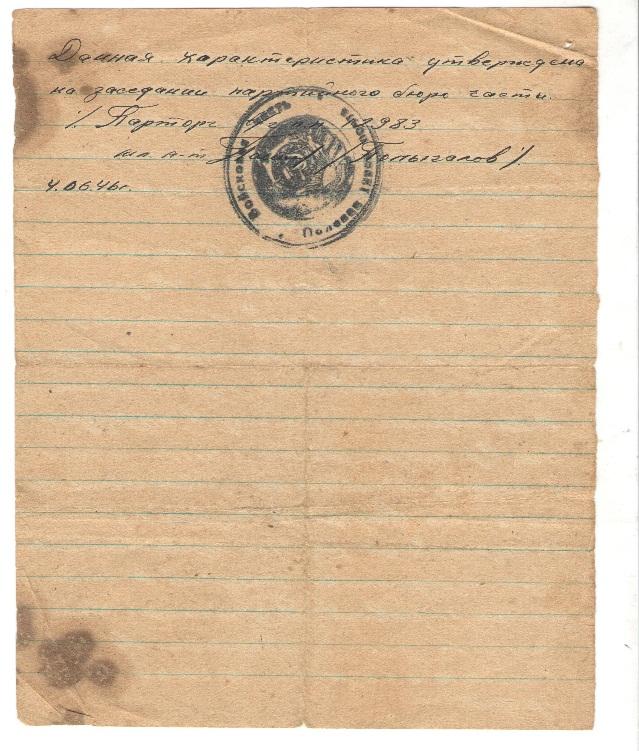 Данная характеристика утверждена
на заседании партийного бюро части.
/. Парторг
мл. л-т /.
4.06.46г.
Войсковая часть Полевая почта